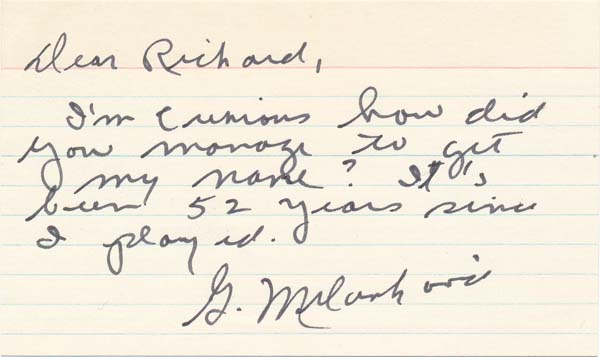 Dear Richard,
I'm curious how did
you manage to get
my name? It's
been 52 years since
I played.
G. Milankovic